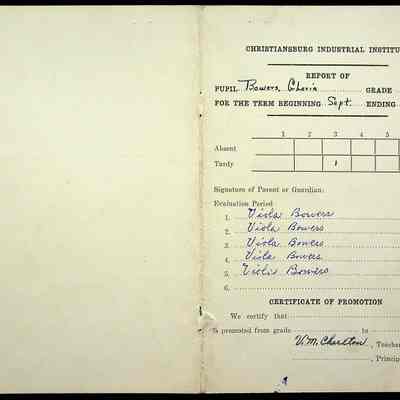 CHRISTIANSBURG INDUSTRIAL INSTITU
REPORT OF
PUPIL Bowers, Gloria GRADE
FOR THE TERM BEGINNING Sept. ENDING
1 2 3 4 5
Absent
Tardy 1
Signature of Parent or Guardian:
Evaluation Period
1. Viola Bowers
2. Viola Bowers
3. Viola Bowers
4. Viola Bowers
5. Viola Bowers
6.
CERTIFICATE OF PROMOTION
We certify that
is promoted from grade to
V.M. Charlton, Teacher
, Princip